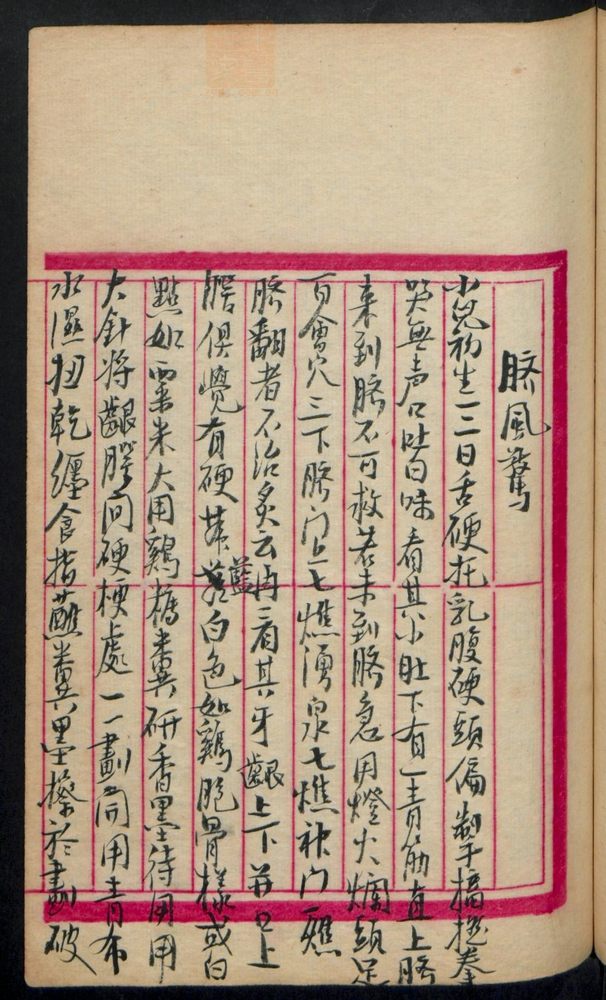 臍風驚
小兒初生一二日舌硬拒乳腹硬頭偏掣手搐撮拳
哭無声口吐白味看其小肚下有一青筋直上臍
来到臍不可救若未到臍急用燈火爛頭足
百會穴三下臍门上七燋湧泉七燋神门一燋
臍翻者不治矣云内三看其牙齦上下并口上
腭俱覺有硬帯藍白色如鷄胞骨樣或白
點如粟米大用鷄糞研香墨待用用
大針将齦腭间硬梗處一一劃向用青布
水濕扭乾纏食指蘸糞墨擦於劃破